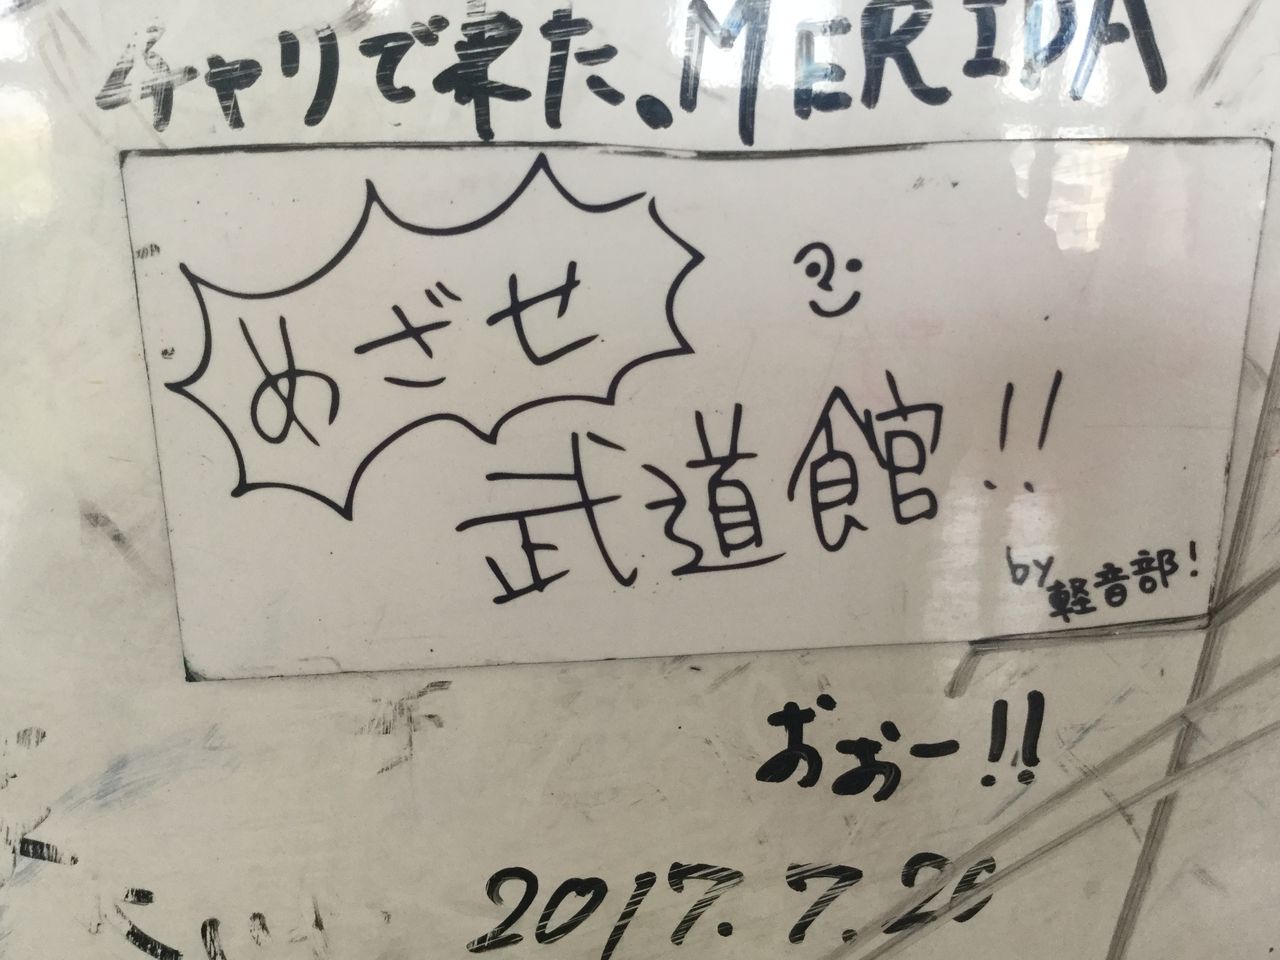 チャリで来た。MERIDA
めざせ
武道館!!
by 軽音部!
おぉー!!
2017.7.26